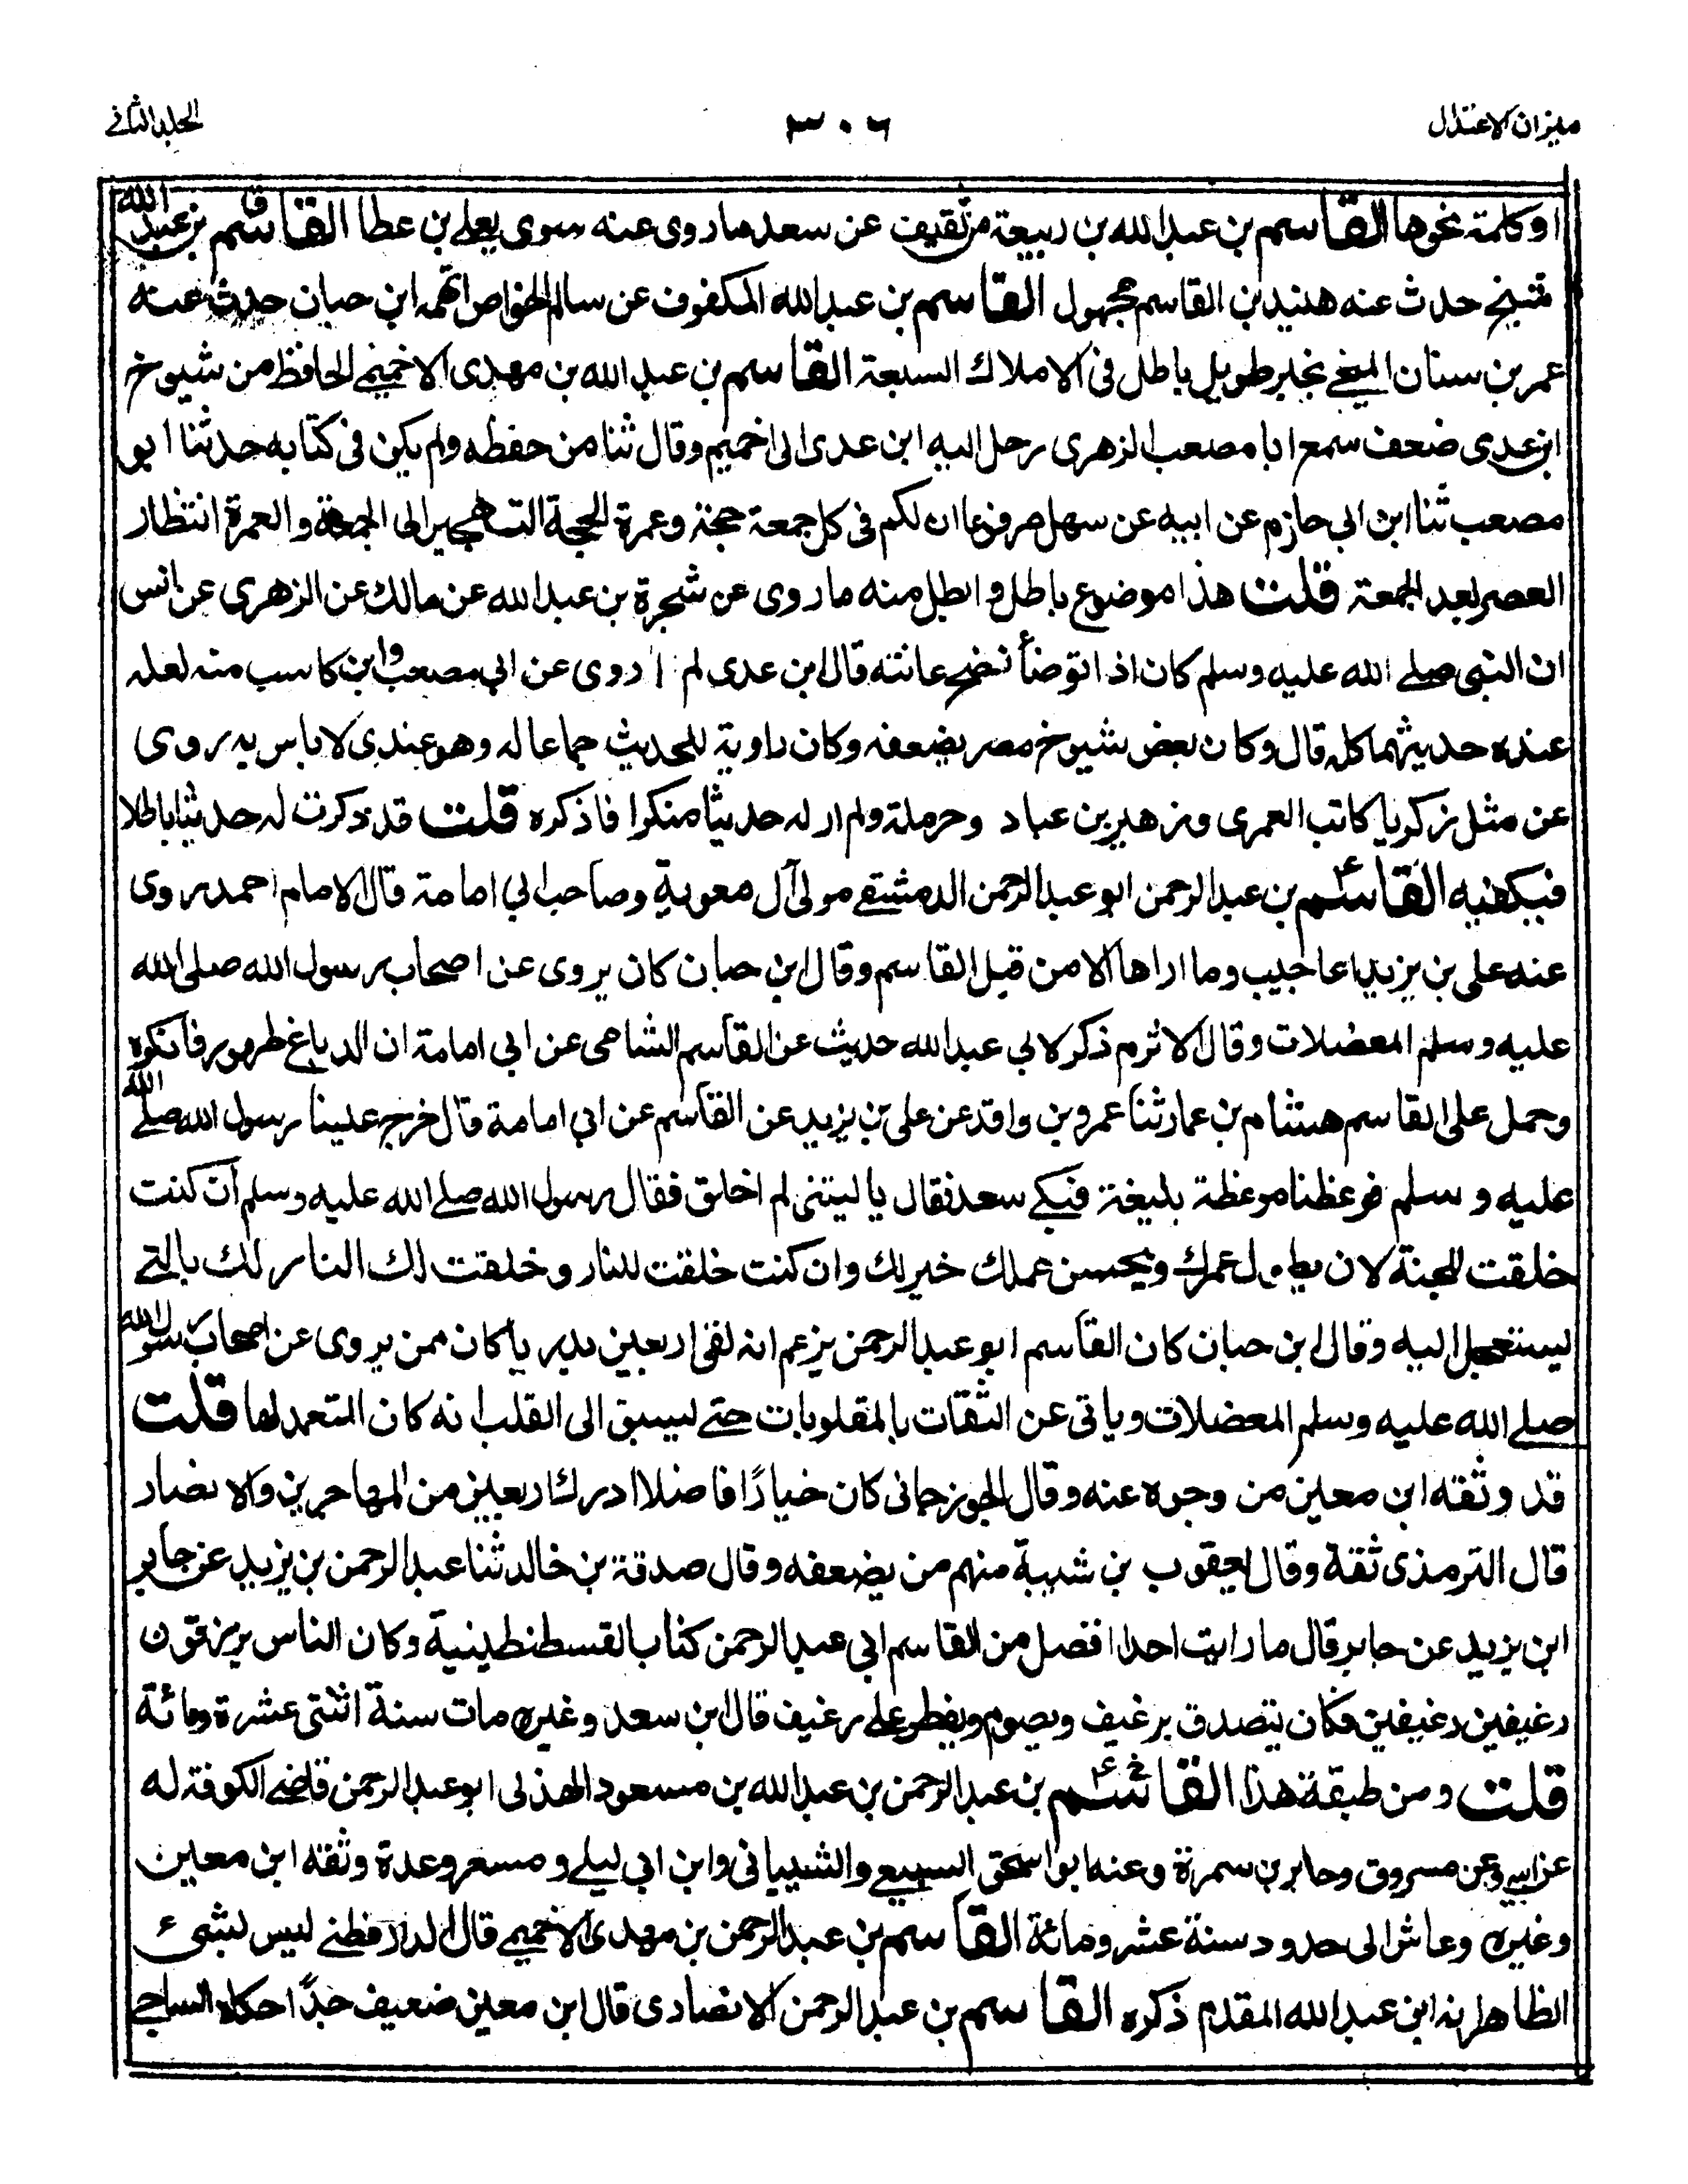 ميزان الاعتدال
٣٠٦
الجلد الثاني
او كلمة نحوها القاسم بن عبد الله بن ربيعة من ثقيف عن سعد ما روى عنه سوى يعلى بن عطا القاسم بن عبد الله
شيخ حدث عنه هنيد بن القاسم مجهول القاسم بن عبد الله المكفوف عن سالم الخواص اتهمه ابن حبان حدث عنه
عمر بن سنان المنبجي بخبر طويل باطل في الاملاك السبعة القاسم بن عبد الله بن مهدى الاخميمي الحافظ من شيوخ
ابن عدى ضعف سمع ابا مصعب الزهرى رحل اليه ابن عدى الى اخميم وقال ثنا من حفظه ولم يكن في كتابه حدثنا ابو
مصعب ثنا ابن ابي حازم عن ابيه عن سهل مرفوعا ان لكم في كل جمعة حجة وعمرة الحجة التهجير الى الجمعة والعمرة انتظار
العصر بعد الجمعة قلت هذا موضوع باطل وابطل منه ما روى عن شجرة بن عبد الله عن مالك عن الزهرى عن انس
ان النبي صلى الله عليه وسلم كان اذا توضأ نضح عانته قال ابن عدى لم اروى عن ابي مصعب وابن كاسب منه لعله
عنده حديثهما كله قال وكان بعض شيوخ مصر يضعفه وكان راوية للحديث جماعا له وهو عندى لا باس به يروى
عن مثل زكريا كاتب العمرى و زهير بن عباد وحرملة ولم ار له حديثا منكرا فاذكره قلت قد ذكرت له حديثا باطلا
فيكفيه القاسم بن عبد الرحمن ابو عبد الرحمن الدمشقي مولى آل معوية وصاحب ابي امامة قال الامام احمد روى
عنه على بن يزيد اعاجيب وما اراها الا من قبل القاسم وقال ابن حبان كان يروى عن اصحاب رسول الله صلى الله
عليه وسلم المعضلات وقال الاثرم ذكر لابي عبد الله حديث عن القاسم الشامى عن ابي امامة ان الدباغ طهور فانكره
وحمل على القاسم هشام بن عمار ثنا عمرو بن واقد عن على بن يزيد عن القاسم عن ابي امامة قال خرج علينا رسول الله صلى الله
عليه وسلم فوعظنا موعظة بليغة فبكى سعد فقال يا ليتنى لم اخلق فقال رسول الله صلى الله عليه وسلم ان كنت
خلقت للجنة لان يطول عمرك ويحسن عملك خير لك وان كنت خلقت للنار وخلقت لك النار لك بالتى
ليستعجل اليه وقال ابن حبان كان القاسم ابو عبد الرحمن يزعم انه لقى اربعين بدريا كان ممن يروى عن اصحاب رسول الله
صلى الله عليه وسلم المعضلات وياتى عن الثقات بالمقلوبات حتى ليسبق الى القلب انه كان المتعمد لها قلت
قد وثقه ابن معين من وجوه عنه وقال الجوزجانى كان خيارًا فاضلا ادرك اربعين من المهاجرين والانصار
قال الترمذى ثقة وقال يعقوب بن شيبة منهم من يضعفه وقال صدقة بن خالد ثنا عبد الرحمن بن يزيد عن جابر
ابن يزيد عن جابر قال ما رايت احدا افضل من القاسم ابي عبد الرحمن كنا بالقسطنطينية وكان الناس يرزقون
رغيفين رغيفين فكان يتصدق برغيف ويصوم ويفطر على رغيف قال ابن سعد وغيره مات سنة اثنتى عشرة ومائة
قلت ومن طبقة هذا القاسم بن عبد الرحمن بن عبد الله بن مسعود الهذلى ابو عبد الرحمن قاضى الكوفة له
عن ابيه وعن مسروق وجابر بن سمرة وعنه ابو اسحق السبيعى والشيبانى وابن ابي ليلى ومسعر وعدة وثقه ابن معين
وغيره وعاش الى حدود سنة عشر ومائة القاسم بن عبد الرحمن بن مهدى الاخميمي قال الدارقطنى ليس بشىء
الظاهر انه ابن عبد الله المقدم ذكره القاسم بن عبد الرحمن الانصارى قال ابن معين ضعيف جدًا حكاه الساجى